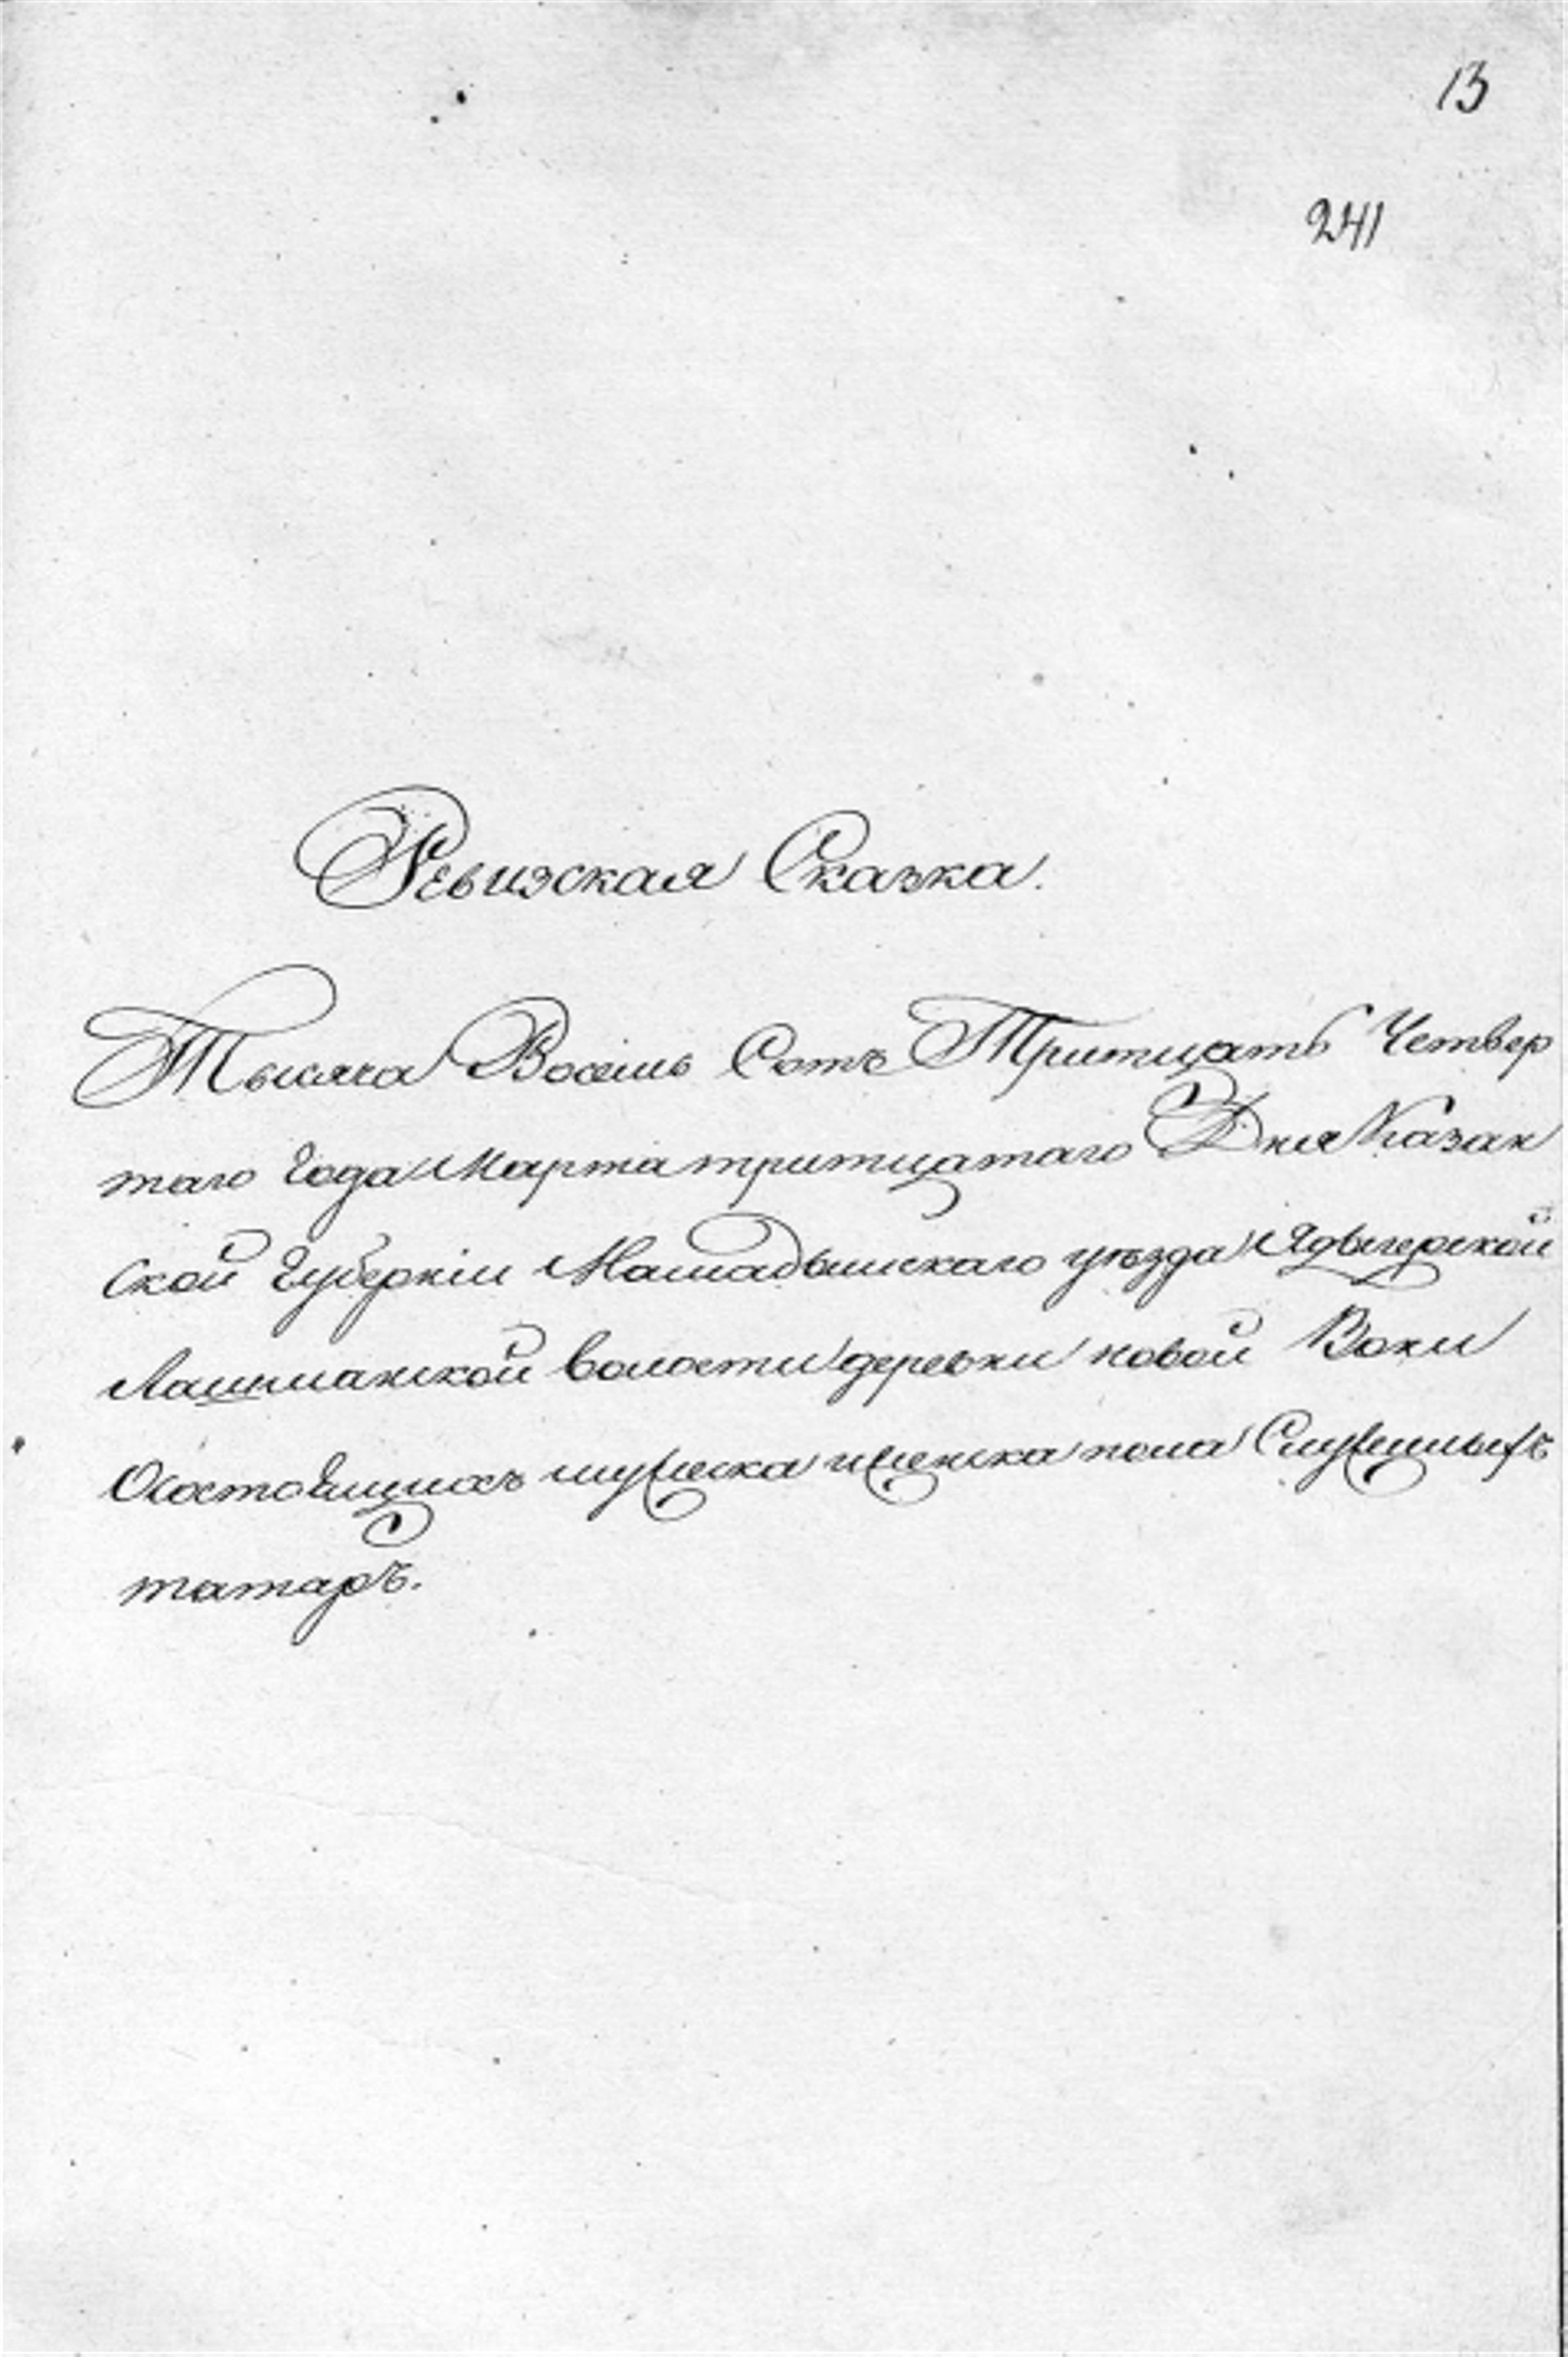 13
241
Ревизская Сказка.
Тысяча Восемь Сотъ Тритцать Четвер
таго Года Марта тритцатаго Дня Казан
ской Губернiи Мамадышскаго уѣзда Ядыгерской
Лашманской волости деревни новой Воки
Осостоящихъ мужеска иженска пола Служилыхъ
татаръ.